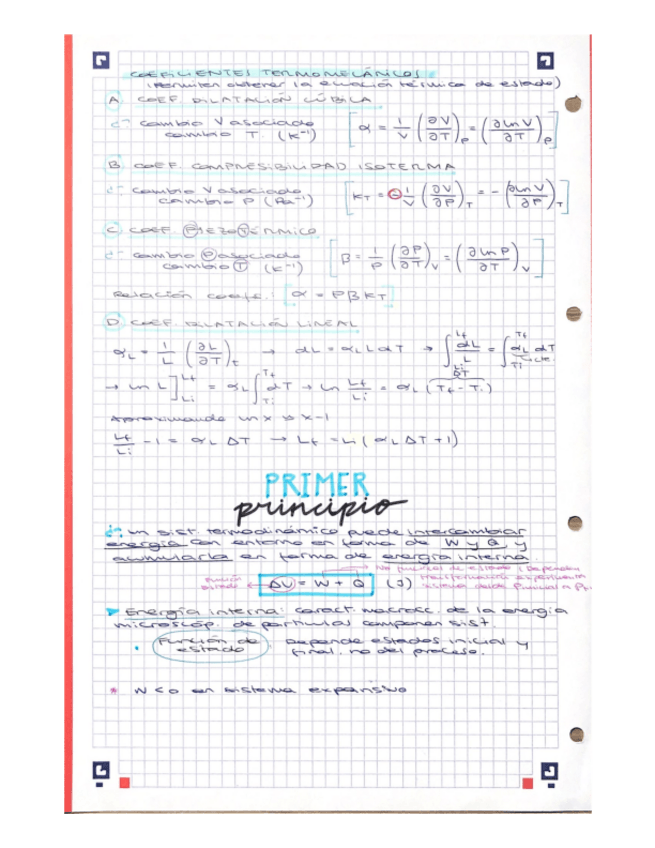 COEFICIENTES TERMOMECÁNICOS:
(Permiten obtener la ecuación térmica de estado)
A. COEF. DILATACIÓN CÚBICA
d: cambio V asociado α = 1/V (∂V/∂T)_P = (∂ln V/∂T)_P
cambio T. (K⁻¹)
B. COEF. COMPRESIBILIDAD ISOTERMA
d: cambio V asociado K_T = - 1/V (∂V/∂P)_T = - (∂ln V/∂P)_T
cambio P (Pa⁻¹)
C. COEF. PIEZOTÉRMICO
d: cambio P asociado β = 1/P (∂P/∂T)_V = (∂ln P/∂T)_V
cambio T (K⁻¹)
Relación coefs.: α = PβK_T
D. COEF. DILATACIÓN LINEAL
α_L = 1/L (∂L/∂T)_t → dL = α_L L dT → ∫_Li^Lf dL/L = ∫_Ti^Tf α_L dT
→ ln L]_Li^Lf = α_L ∫_Ti^Tf dT → ln Lf/Li = α_L (Tf - Ti)
ΔT
cte.
Aproximando ln x ≈ x-1
Lf/Li - 1 = α_L ΔT → Lf = Li (α_L ΔT + 1)
PRIMER
principio
d: un sist. termodinámico puede intercambiar
energía con entorno en forma de W y Q y
acumularla en forma de energía interna.
No funcional de estado (Dependen
función
estado
ΔU = W + Q (J)
transformación experimenta
sistema desde
▸ Energía interna: caract. macrosc. de la energía
microscóp. de partículas componen sist.
• Función de estado Depende estados inicial y
final, no del proceso.
* W < 0 en sistema expansivo